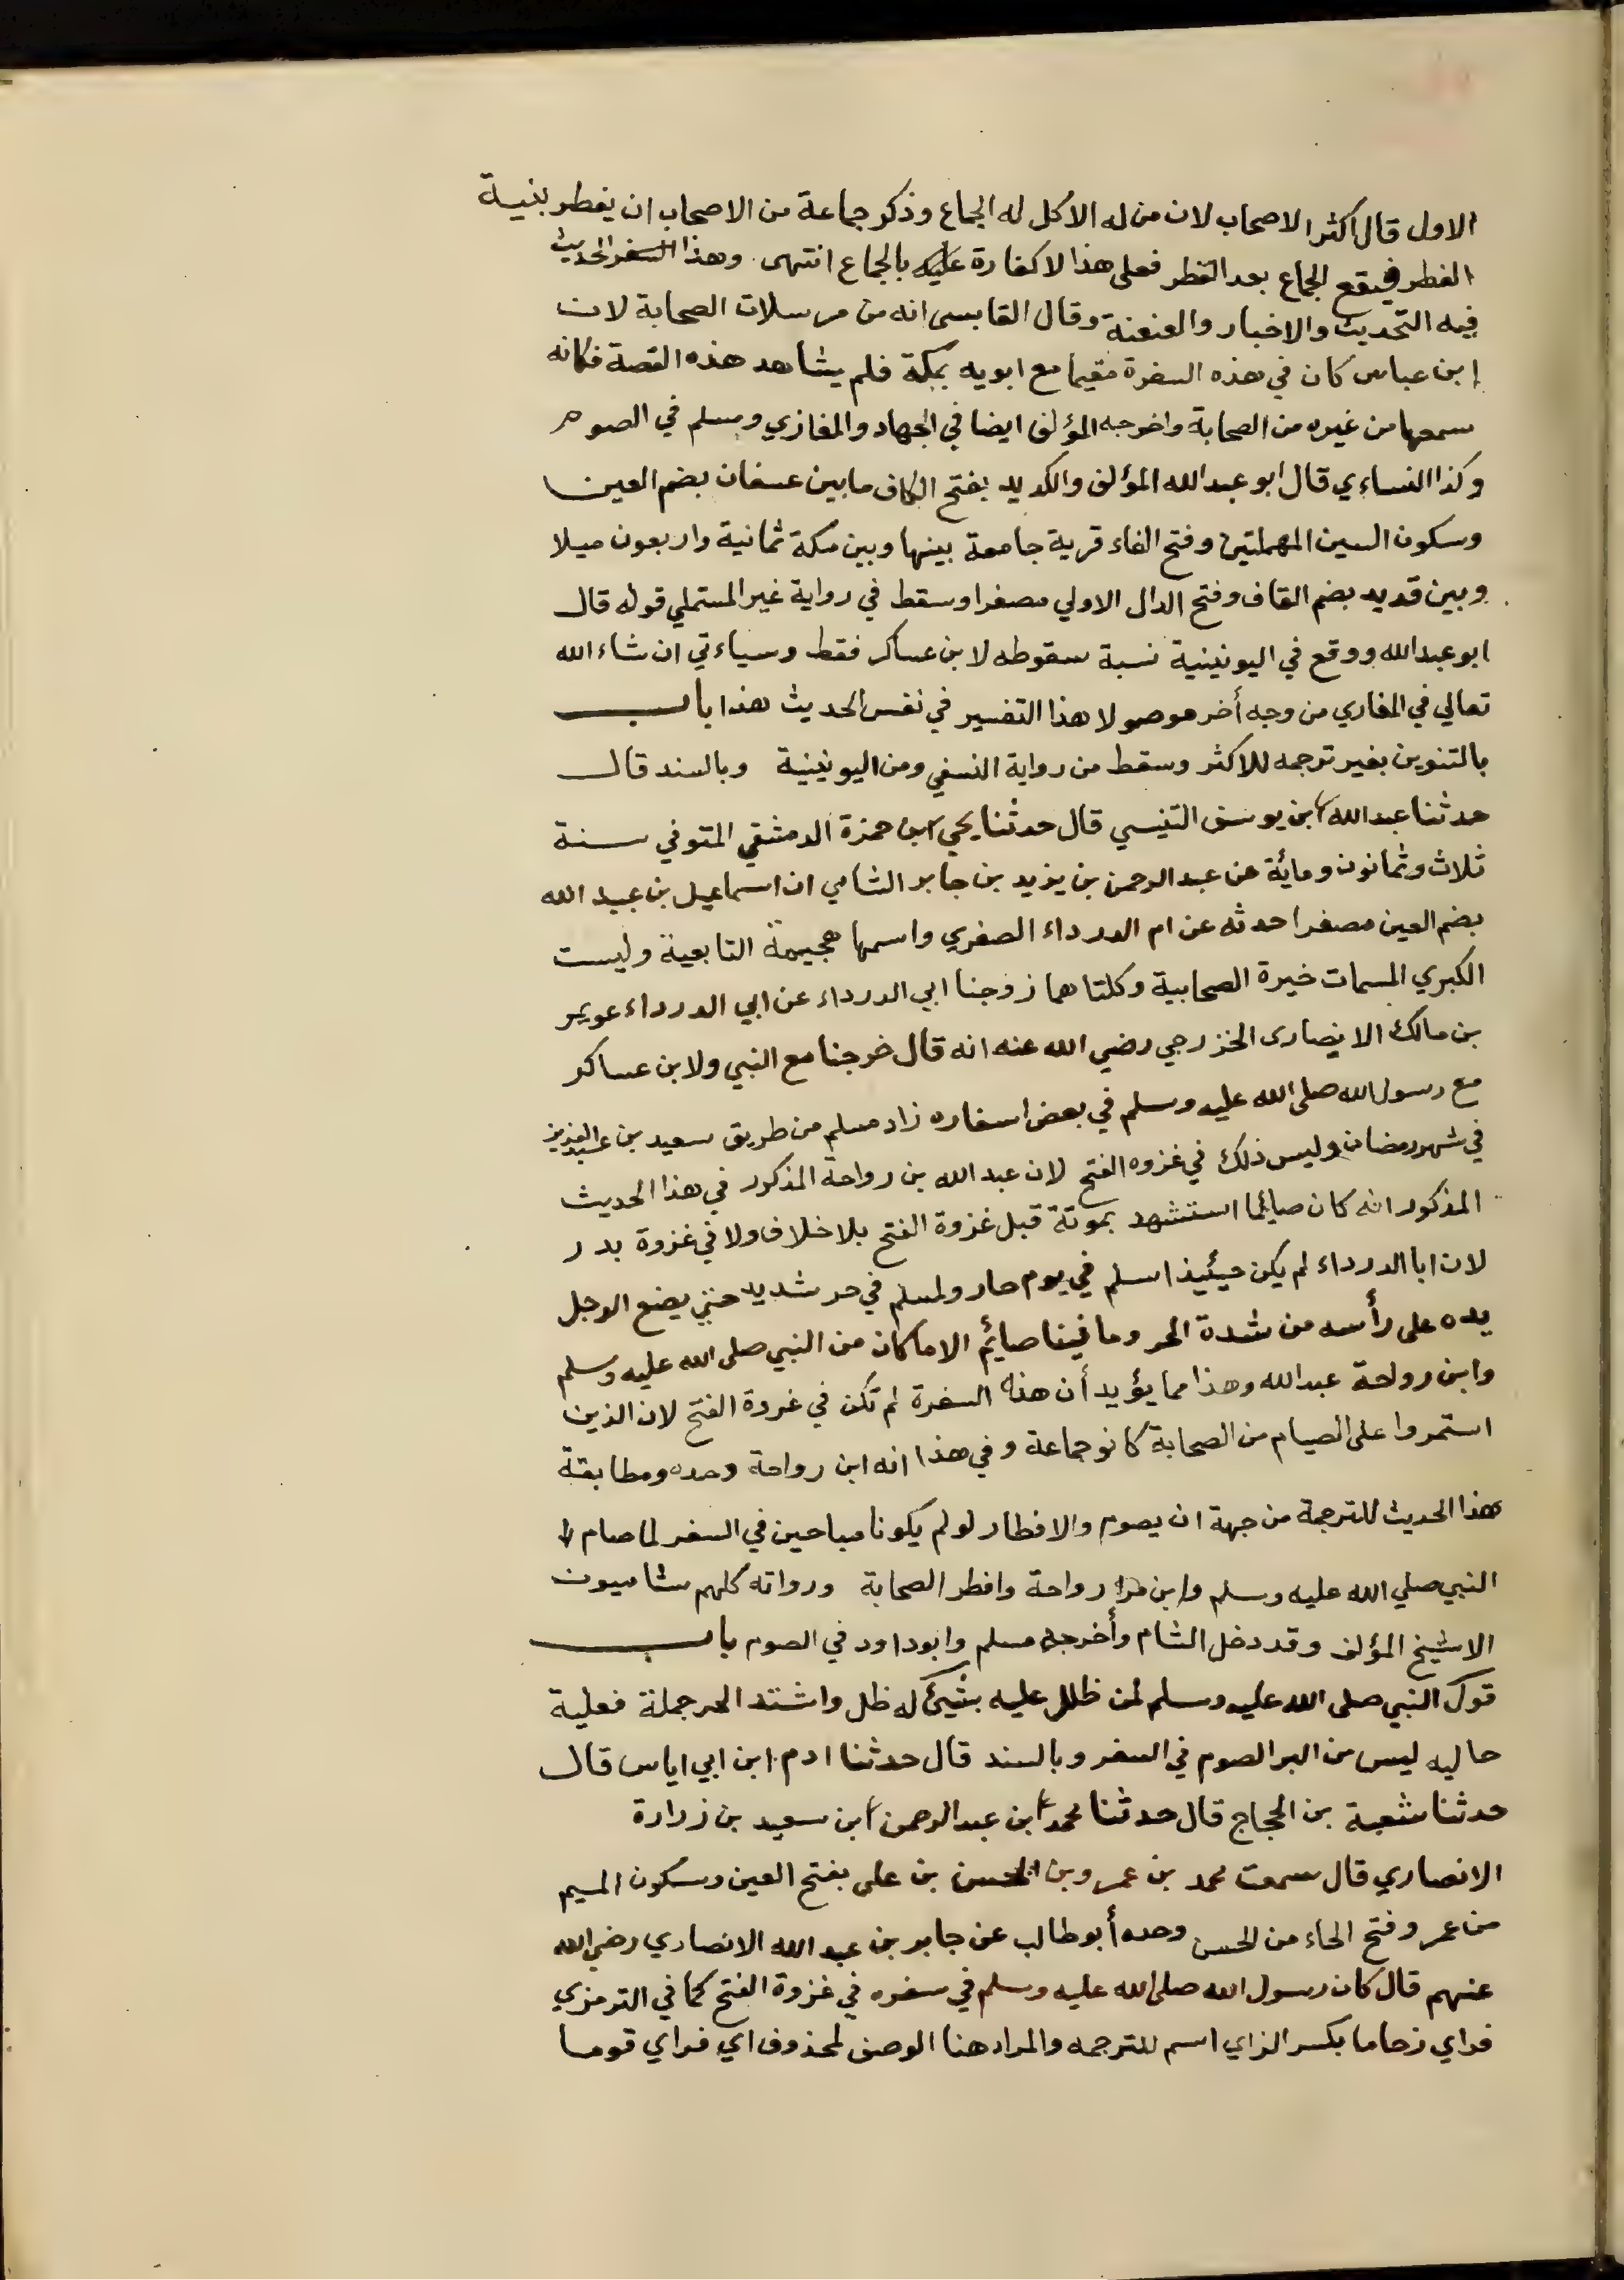 الاول قال اكثر الاصحاب لان من له الاكل له الجماع وذكر جماعة من الاصحاب ان يفطر بنية
الفطر فيقع الجماع بعد الفطر فعلى هذا لا كفارة عليه بالجماع انتهى وهذا السفر الحديث
فيه التحديث والاخبار والعنعنة وقال القابسى انه من مرسلات الصحابة لان
ابن عباس كان في هذه السفرة مقيما مع ابويه بمكة فلم يشاهد هذه القصة فكانه
سمعها من غيره من الصحابة واخرجه المؤلف ايضا في الجهاد والمغازي ومسلم في الصوم
وكذا النساءي قال ابو عبد الله المؤلف والكديد بفتح الكاف مابين عسفان بضم العين
وسكون السين المهملتين وفتح الفاء قرية جامعة بينها وبين مكة ثمانية واربعون ميلا
وبين قديد بضم القاف وفتح الدال الاولي مصغرا وسقط في رواية غير المستملي قوله قال
ابو عبد الله ووقع في اليونينية نسبة سقوطه لابن عساكر فقط وسياءتي ان شاء الله
تعالي في المغاري من وجه أخر موصولا هذا التفسير في نفس الحديث هذا باب
بالتنوين بغير ترجمه للاكثر وسقط من رواية النسفي ومن اليونينية وبالسند قال
حدثنا عبد الله ابن يوسف التنيسي قال حدثنا يحي ابن حمزة الدمشقي المتوفي سنة
ثلاث وثمانون ومائة عن عبد الرحمن بن يزيد بن جابر الشامي ان اسماعيل بن عبيد الله
بضم العين مصغرا حدثه عن ام الدرداء الصغري واسمها هجيمة التابعية وليست
الكبري المسمات خيرة الصحابية وكلتاهما زوجنا ابي الدرداء عن ابي الدرداء عويمر
بن مالك الانصارى الخزرجي رضي الله عنه انه قال خرجنا مع النبي ولابن عساكر
مع رسول الله صلى الله عليه وسلم في بعض اسفاره زاد مسلم من طريق سعيد بن عبد العزيز
في شهر رمضان وليس ذلك في غزوه الفتح لان عبد الله بن رواحة المذكور في هذا الحديث
المذكور انه كان صايما استشهد بموتة قبل غزوة الفتح بلا خلاف ولا في غزوة بدر
لان ابا الدرداء لم يكن حيئيذ اسلم في يوم حار ولمسلم في حر شديد حتي يضع الرجل
يده على رأسه من شدة الحر وما فينا صائم الا ما كان من النبي صلى الله عليه وسلم
وابن رواحة عبد الله وهذا مما يؤيد أن هذه السفرة لم تكن في غزوة الفتح لان الذين
استمروا على الصيام من الصحابة كانو جماعة وفي هذا انه ابن رواحة وحده ومطابقة
هذا الحديث للترجمة من جهة ان يصوم والافطار لو لم يكونا مباحين في السفر لما صام
النبي صلي الله عليه وسلم وابن رواحة وافطر الصحابة ورواته كلهم شاميون
الا شيخ المؤلف وقد دخل الشام وأخرجه مسلم وابوداود في الصوم باب
قول النبي صلى الله عليه وسلم لمن ظلل عليه بشيئ له ظل واشتد الحر جملة فعلية
حاليه ليس من البر الصوم في السفر وبالسند قال حدثنا ادم ابن ابي اياس قال
حدثنا شعبة بن الحجاج قال حدثنا محمد ابن عبد الرحمن ابن سعيد بن زرارة
الانصاري قال سمعت محمد بن عمرو بن الحسن بن على بفتح العين وسكون الميم
من عمر وفتح الحاء من الحسن وحده أبو طالب عن جابر بن عبد الله الانصاري رضي الله
عنهم قال كان رسول الله صلى الله عليه وسلم في سفره في غزوة الفتح كما في الترمزي
فراي زحاما بكسر الزاي اسم للترجمه والمراد هنا الوصف لمحذوف اي فراي قوما